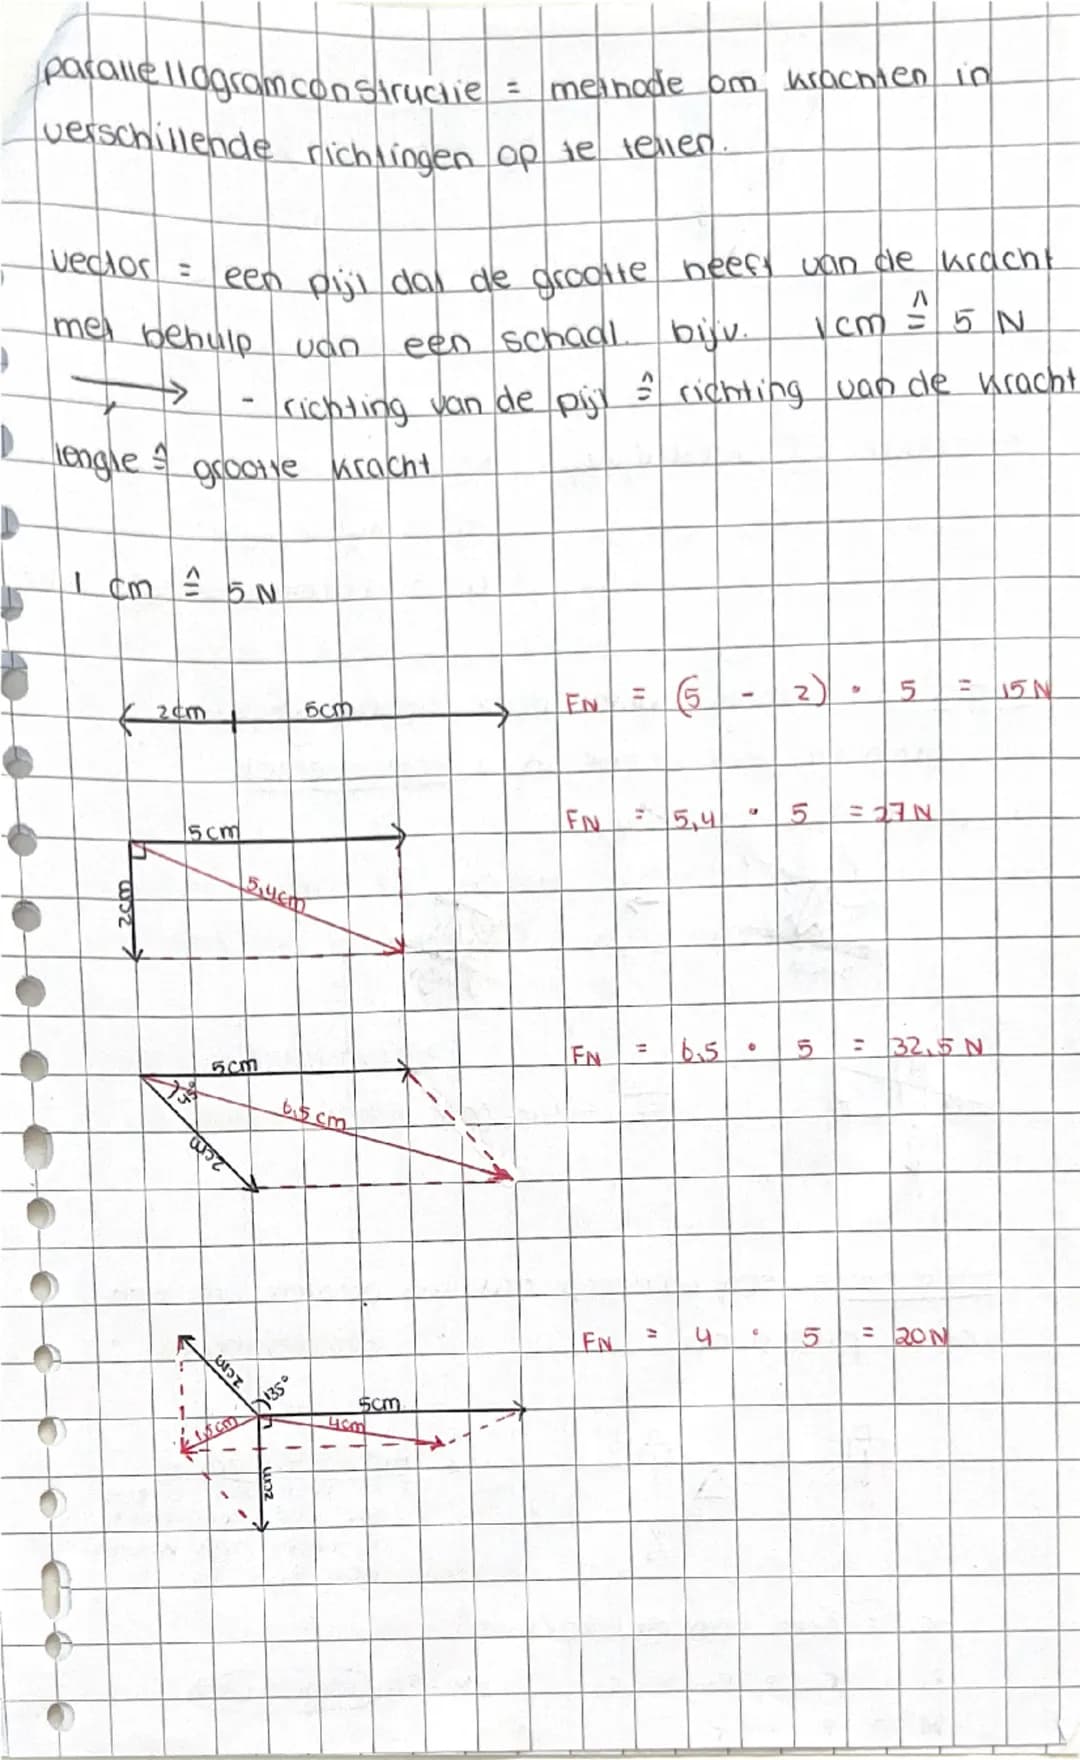 parallellogramconstructie = methode om krachten in
verschillende richtingen op te tellen.
vector = een pijl dat de grootte heeft van de kracht
met behulp van een schaal. bijv. 1 cm ≙ 5 N
- richting van de pijl ≙ richting van de kracht
lengte ≙ grootte kracht
1 cm ≙ 5 N
2cm 5cm FN = (5 - 2) • 5 = 15 N
5cm FN = 5,4 • 5 = 27 N
2cm 5,4cm
5cm FN = 6,5 • 5 = 32,5 N
6,5 cm
2cm
FN = 4 • 5 = 20 N
2cm 135° 5cm
1,5cm 4cm
2cm